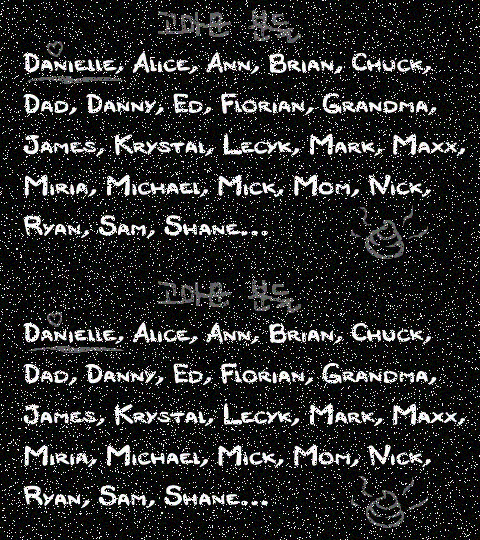 고마운 분들
Danielle, Alice, Ann, Brian, Chuck,
Dad, Danny, Ed, Florian, Grandma,
James, Krystal, Lecyk, Mark, Maxx,
Miria, Michael, Mick, Mom, Nick,
Ryan, Sam, Shane...
고마운 분들
Danielle, Alice, Ann, Brian, Chuck,
Dad, Danny, Ed, Florian, Grandma,
James, Krystal, Lecyk, Mark, Maxx,
Miria, Michael, Mick, Mom, Nick,
Ryan, Sam, Shane...